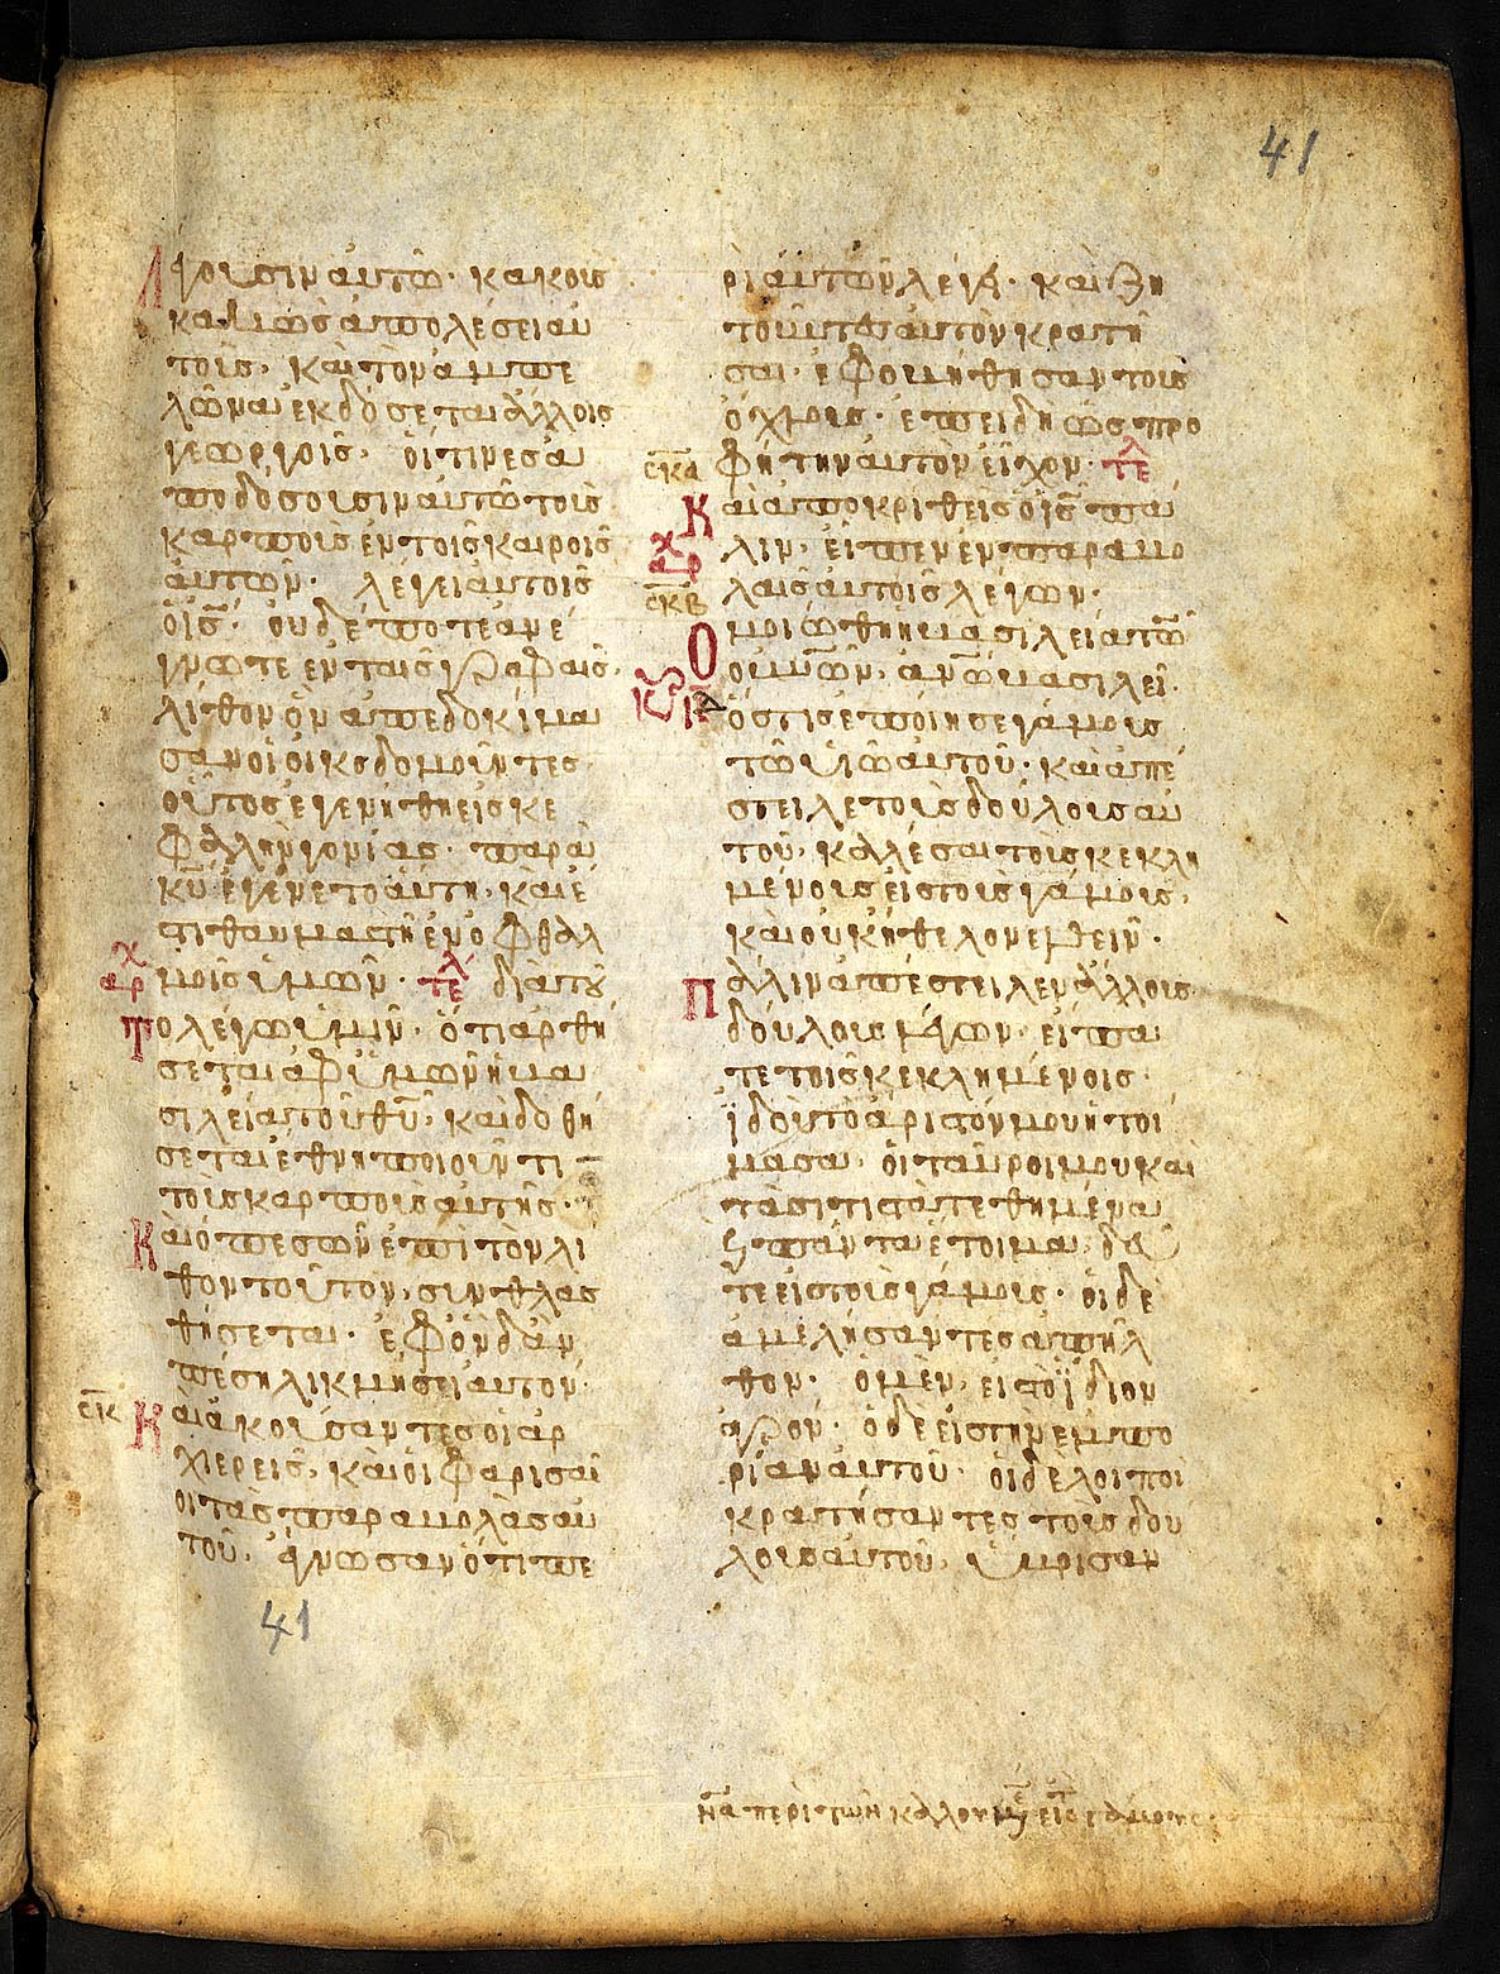 41
Λέγουσιν αὐτῶ· κακοὺς
κακῶς ἀπολέσει αὐ
τοὺς, καὶ τὸν ἀμπε
λῶνα ἐκδόσεται ἄλλοις
γεωργοῖς, οἵτινες ἀ
ποδώσουσιν αὐτῶ τοὺς
καρποὺς ἐν τοῖς καιροῖς
αὐτῶν· λέγει αὐτοῖς
ὁ ις̅· οὐδέποτε ἀνέ
γνωτε ἐν ταῖς γραφαῖς,
λίθον ὃν ἀπεδοκίμα
σαν οἱ οἰκοδομοῦντες
οὗτος ἐγενήθη εἰς κε
φαλὴν γωνίας· παρὰ
κυ̅ ἐγένετο αὕτη, καὶ ἔ
στι θαυμαστὴ ἐν ὀφθαλ
αρχ
μοῖς ὑμῶν· τελ διὰ τοῦ
το λέγω ὑμῖν· ὅτι ἀρθή
σεται ἀφ' ὑμῶν ἡ βα
σιλεία τοῦ θυ̅, καὶ δοθή
σεται ἔθνη ποιοῦντι
τοὺς καρποὺς αὐτῆς·
Καὶ ὁ πεσὼν ἐπὶ τὸν λί
θον τοῦτον, συνθλασ
θήσεται· ἐφ' ὃν δ' ἂν
πέση λικμήσει αὐτόν·
σκ
Καὶ ἀκούσαντες οἱ ἀρ
χιερεῖς, καὶ οἱ φαρισαῖ
οι τὰς παραβολὰς αὐ
τοῦ, ἔγνωσαν ὅτι πε
41
ρὶ αὐτῶν λέγει· καὶ ζη
τοῦντες αὐτὸν κρατῆ
σαι· ἐφοβήθησαν τοὺς
ὄχλους· ἐπειδὴ ὡς προ
σκα
φήτην αὐτὸν εἶχον· τελ
Καὶ ἀποκριθεὶς ὁ ις̅ πά
αρχ
λιν, εἶπεν ἐν παραβο
σκβ
λαῖς αὐτοῖς λέγων·
Ὁμοιώθη ἡ βασιλεία τῶν
οὐνῶν, ἀνω̅ βασιλεῖ·
ὅστις ἐποίησε γάμους
τῶ υἱῶ αὐτοῦ· καὶ ἀπέ
στειλε τοὺς δούλους αὐ
τοῦ, καλέσαι τοὺς κεκλη
μένους εἰς τοὺς γάμους,
καὶ οὐκ ἤθελον ἐλθεῖν·
Πάλιν ἀπέστειλεν ἄλλους
δούλους λέγων· εἴπα
τε τοῖς κεκλημένοις·
ἰδοὺ τὸ ἄριστόν μου ἡτοί
μασα, οἱ ταῦροί μου καὶ
τὰ σιτιστὰ τεθημένα
ϗ πάντα ἕτοιμα, δεῦ
τε εἰς τοὺς γάμους· οἱ δὲ
ἀμελήσαντες ἀπῆλ
θον· ὁ μὲν, εἰς τὸ ἴδιον
ἀγρόν· ὁ δὲ εἰς τὴν ἐμπο
ρίαν αὐτοῦ· οἱ δὲ λοιποὶ
κρατήσαντες τοὺς δού
λους αὐτοῦ, ὕβρισαν
να περὶ τῶν καλουμε εἰς τ γάμους